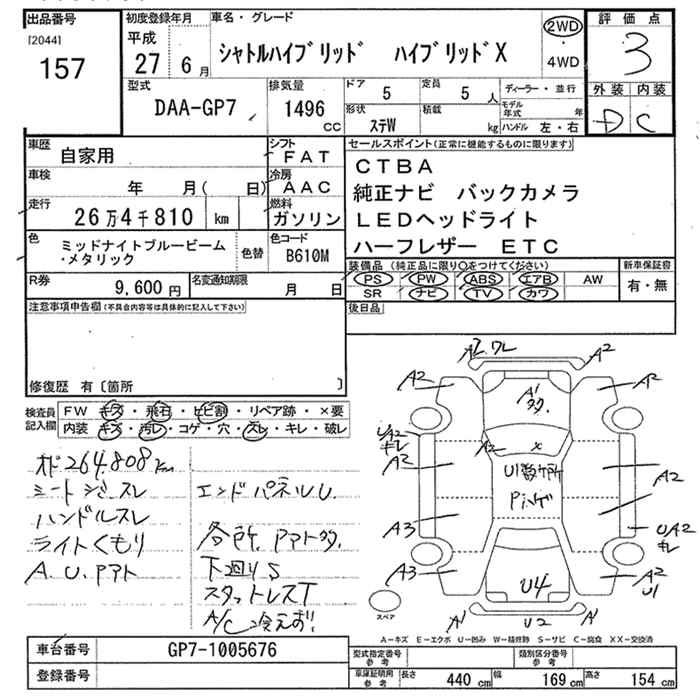 出品番号
[2044]
157
初度登録年月
平成
27年 6月
車名・グレード
シャトルハイブリッド ハイブリッドX
2WD
・
4WD
評価点
3
外装 内装
D C
型式
DAA-GP7
排気量
1496
CC
ドア
5
定員
5 人
形状
ステW
積載
kg
ディーラー・並行
モデル年式 年
ハンドル 左・右
車歴
自家用
シフト
FAT
車検
年 月( 日)
冷房
AAC
走行
26万4千810 km
燃料
ガソリン
色
ミッドナイトブルービーム・メタリック
色替
色コード
B610M
R券
9,600円
名変通知期限
月 日
セールスポイント(正常に機能するものに限ります)
CTBA
純正ナビ バックカメラ
LEDヘッドライト
ハーフレザー ETC
装備品(純正品に限り○をつけてください)
PS PW ABS エアB AW
SR ナビ TV カワ
新車保証書
有・無
後日品
注意事項申告欄(不具合内容等は具体的に記入して下さい)
修復歴 有〔箇所 〕
検査員記入欄
FW キズ・飛石・ヒビ割・リペア跡・×要
内装 キズ・汚レ・コゲ・穴・スレ・キレ・破レ
オド264.808km
シートシミ・スレ
ハンドルスレ
ライトくもり
A.U.Pアト
エンドパネルU
各所.Pアト多.
下廻りS
スタットレスT
A/C冷えず!
A2.ワレ A2
A2 A2
A1
多.
UA2
キレ
A2 ×
A2
U1数ヶ所
Pハゲ
A2
A3
UA2
キレ
A3
A2
U1
U4
スペア
A1 U2 A1
A-キズ E-エクボ U-凹み W-補修跡 S-サビ C-腐食 XX-交換済
車台番号
GP7-1005676
登録番号
型式指定番号
参考
類別区分番号
参考
車庫証明用
参考
長さ 440 cm 幅 169 cm 高さ 154 cm